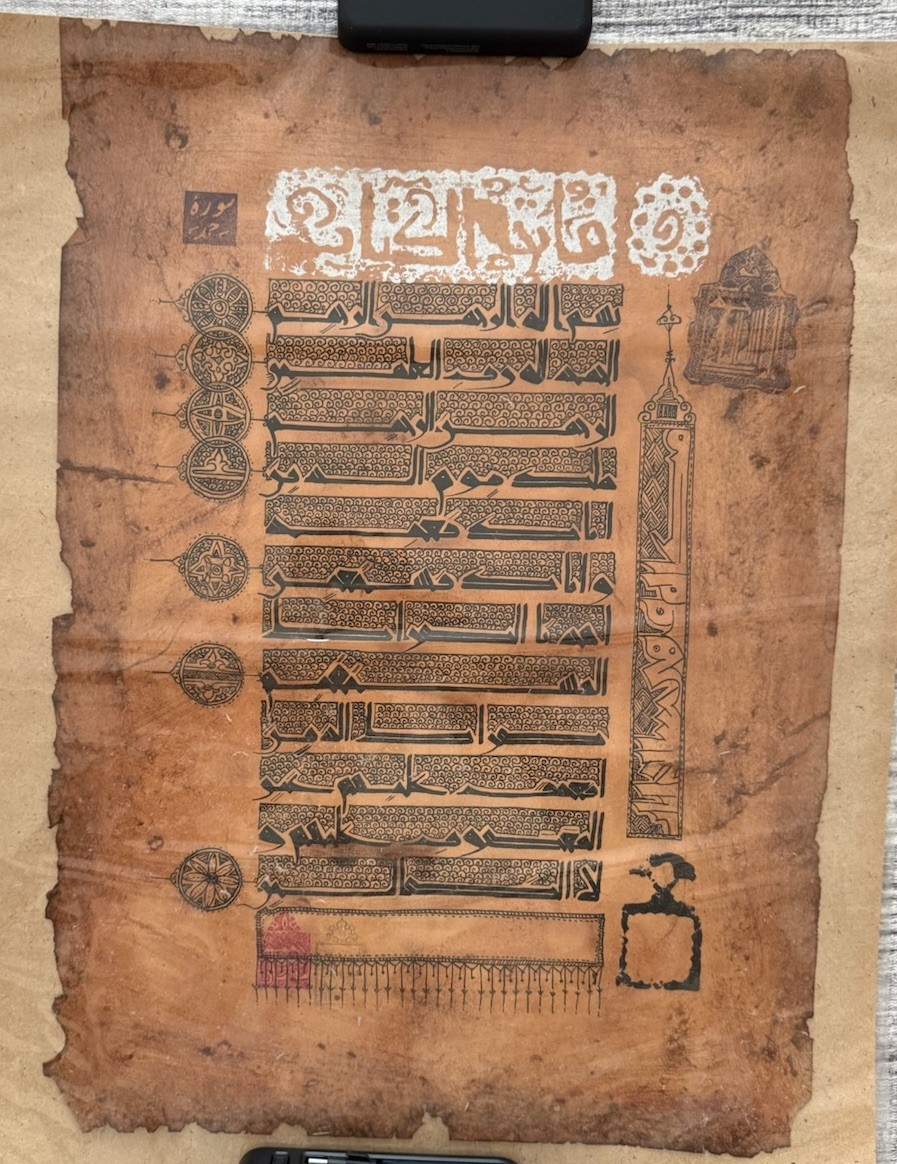 سورهٔ
حمد
بسم الله الرحمن الرحيم
الحمد لله رب العلمين
الرحمن الرحيم
ملك يوم الدين
اياك نعبد
و اياك نستعين
اهدنا الصراط
المستقيم
صراط الذين
انعمت عليهم غير
المغضوب عليهم و
لا الضالين